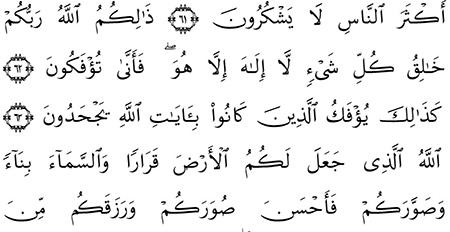 أَكۡثَرَ ٱلنَّاسِ لَا يَشۡكُرُونَ ٦١ ذَٰلِكُمُ ٱللَّهُ رَبُّكُمۡ
خَٰلِقُ كُلِّ شَيۡءٖ لَّآ إِلَٰهَ إِلَّا هُوَۖ فَأَنَّىٰ تُؤۡفَكُونَ ٦٢
كَذَٰلِكَ يُؤۡفَكُ ٱلَّذِينَ كَانُواْ بِـَٔايَٰتِ ٱللَّهِ يَجۡحَدُونَ ٦٣
ٱللَّهُ ٱلَّذِي جَعَلَ لَكُمُ ٱلۡأَرۡضَ قَرَارٗا وَٱلسَّمَآءَ بِنَآءٗ
وَصَوَّرَكُمۡ فَأَحۡسَنَ صُوَرَكُمۡ وَرَزَقَكُم مِّنَ